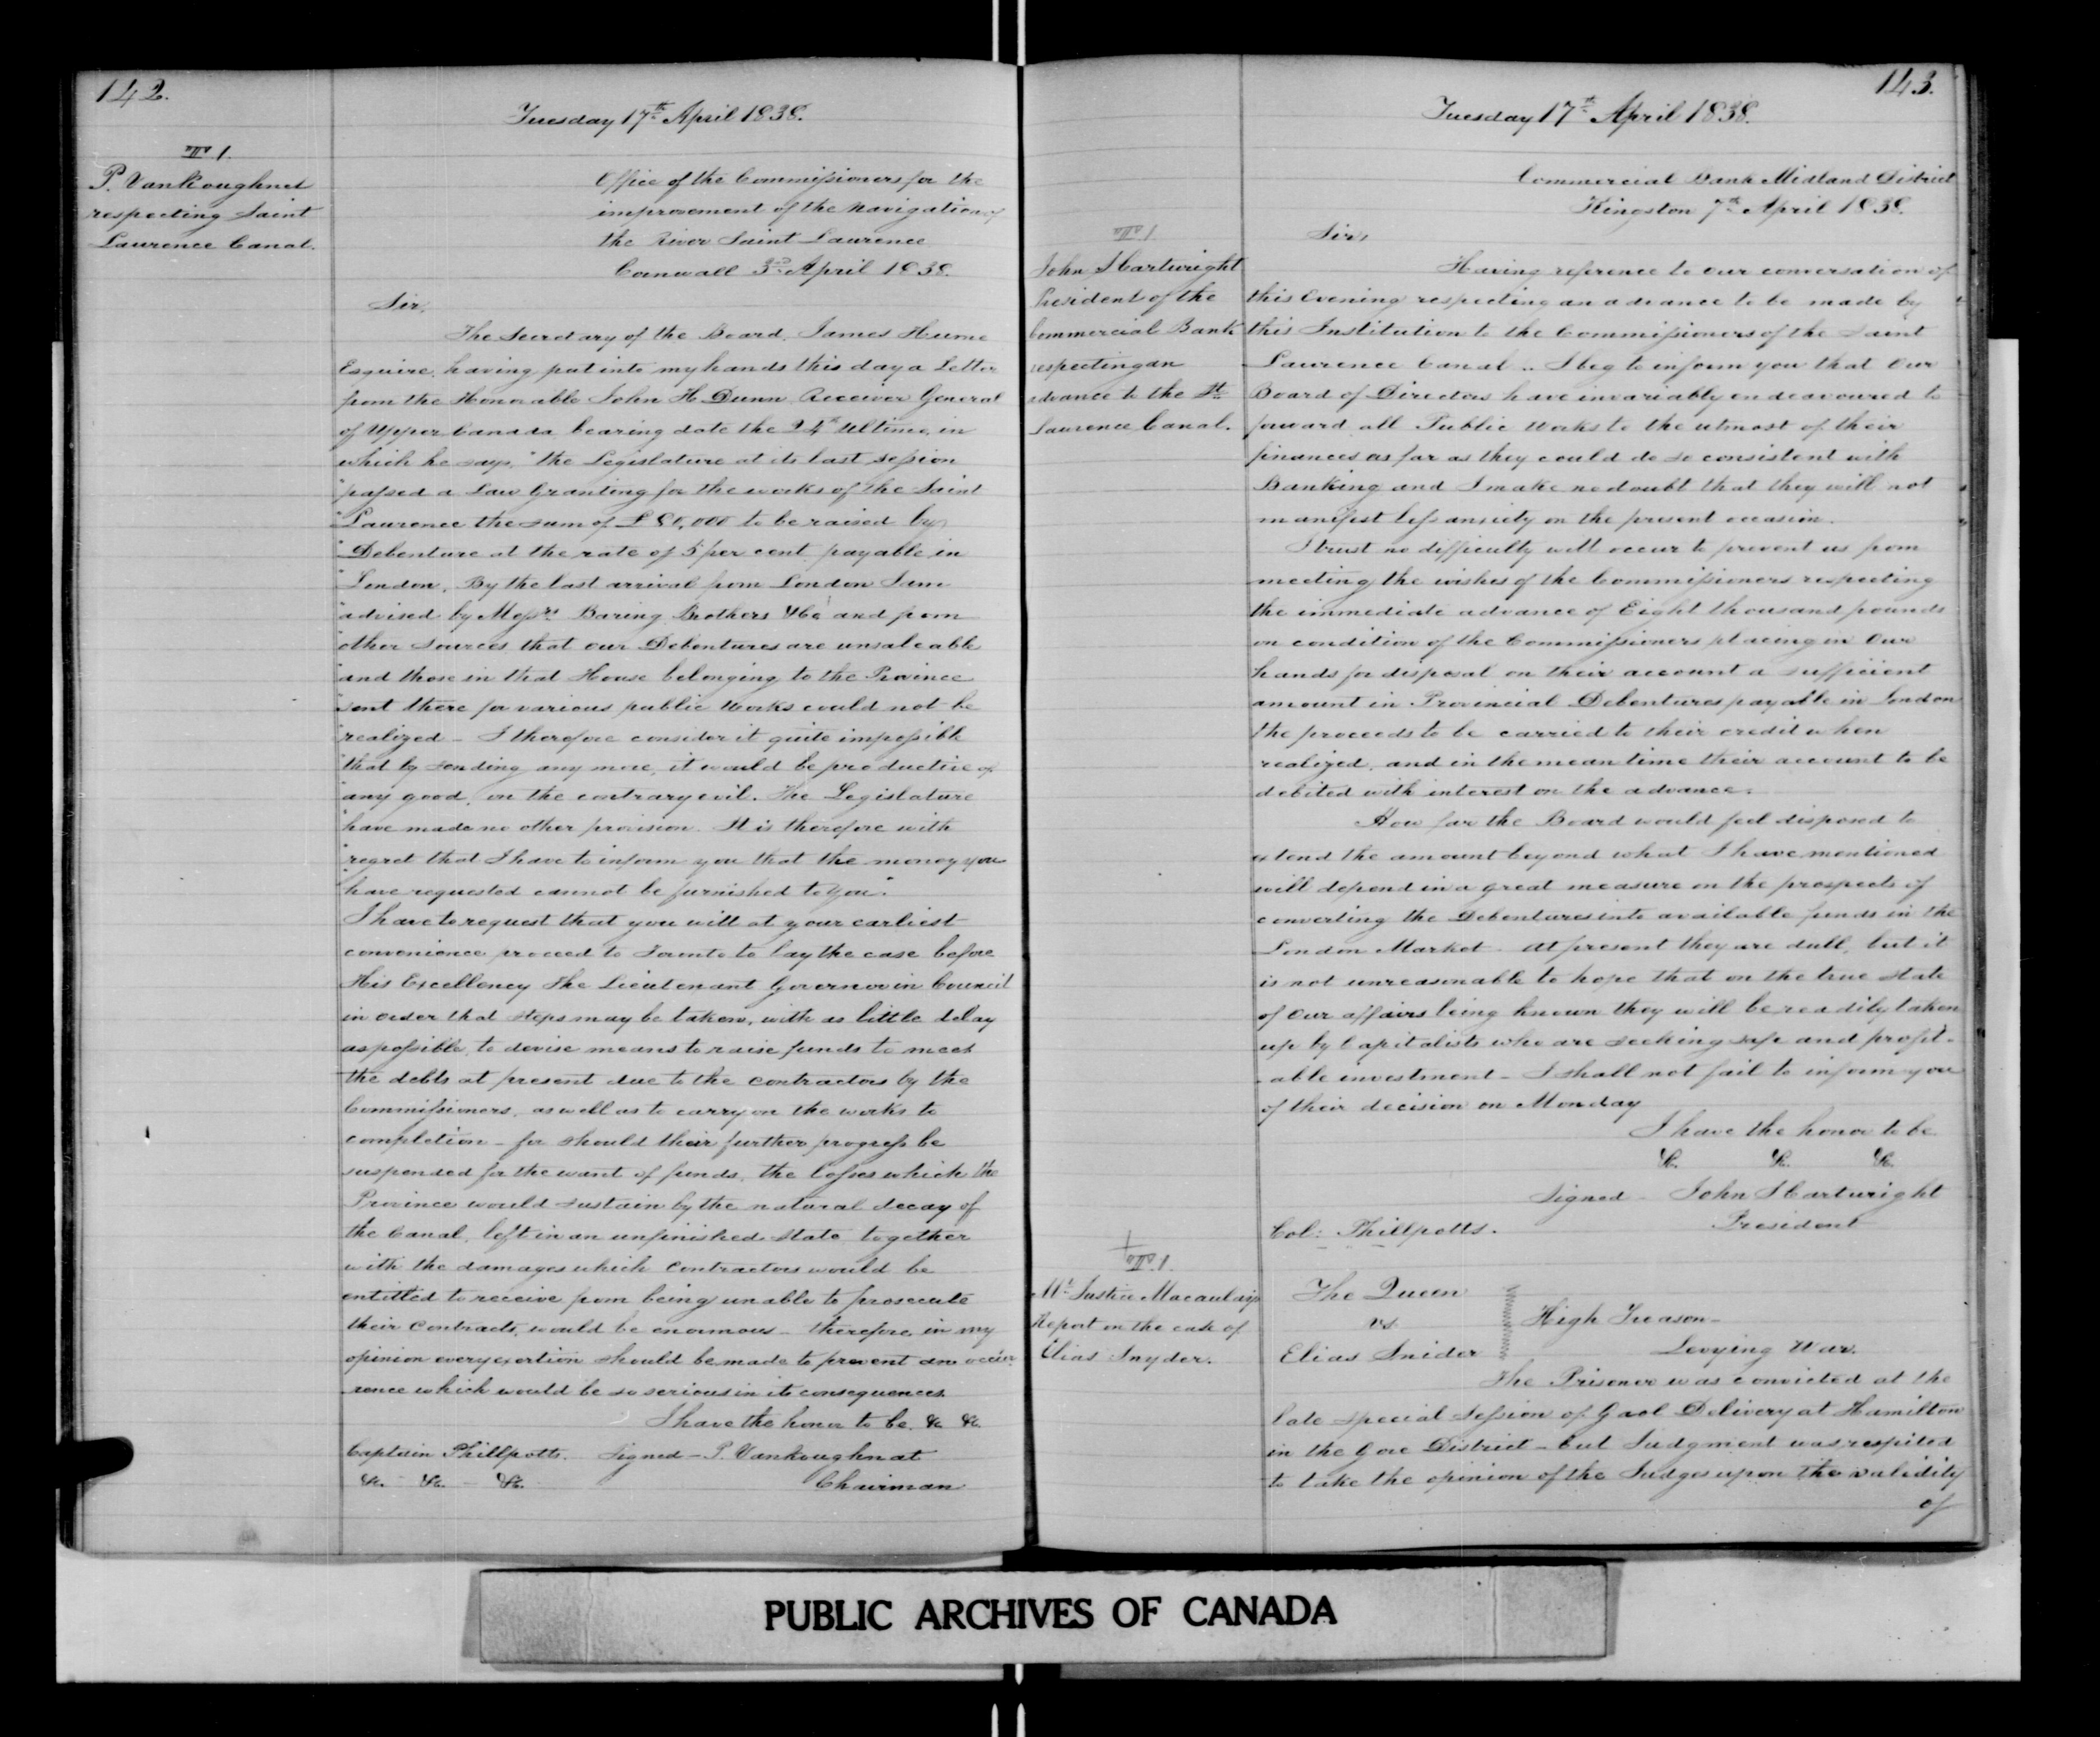 142.
Tuesday 17th April 1838.
P. VanKoughnet
respecting Saint
Laurence Canal.
Office of the Commissioners for the
improvement of the Navigation of
the River Saint Laurence
Cornwall 3rd April 1838.
Sir,
The Secretary of the Board, James Hume
Esquire, having put into my hands this day a Letter
from the Honorable John H Dunn Receiver General
of Upper Canada bearing date the 24th Ultimo, in
which he says, "the Legislature at its last session
"passed a Law Granting for the works of the Saint
"Laurence the sum of £80,000 to be raised by
"Debenture at the rate of 5 per cent payable in
"London. By the last arrival from London I am
"advised by Messrs Baring Brothers &Co and from
"other sources that our Debentures are unsaleable
"and those in that House belonging to the Province
"sent there for various public Works could not be
"realized - I therefore consider it quite impossible
"that by sending any more, it would be productive of
"any good, on the contrary evil. The Legislature
"have made no other provision. It is therefore with
"regret that I have to inform you that the money you
"have requested cannot be furnished to you".
I have to request that you will at your earliest
convenience proceed to Toronto to lay the case before
His Excellency The Lieutenant Governor in Council
in order that steps may be taken, with as little delay
as possible, to devise means to raise funds to meet
the debts at present due to the Contractors by the
Commissioners, as well as to carry on the works to
completion - for should their further progress be
suspended for the want of funds, the losses which the
Province would sustain by the natural decay of
the Canal, left in an unfinished state together
with the damages which Contractors would be
entitled to receive from being unable to prosecute
their Contracts, would be enormous - therefore in my
opinion every exertion should be made to prevent an occur
rence which would be so serious in its consequences.
I have the honor to be &c &c
Captain Phillpotts. Signed - P. Vankoughnat
&c. - &c. - &c. Chairman
143.
Tuesday 17th April 1838.
Commercial Bank Midland District
Kingston 7th April 1838.
John S Cartwright
President of the
Commercial Bank
respecting an
advance to the St
Laurence Canal.
Sir,
Having reference to our conversation of
this Evening respecting an advance to be made by
this Institution to the Commissioners of the Saint
Laurence Canal .. I beg to inform you that Our
Board of Directors have invariably endeavoured to
forward all Public Works to the utmost of their
finances as far as they could do so consistent with
Banking and I make no doubt that they will not
manifest less anxiety on the present occasion.
I trust no difficulty will occur to prevent us from
meeting the wishes of the Commissioners respecting
the immediate advance of Eight thousand pounds
on condition of the Commissioners placing in Our
hands for disposal on their account a sufficient
amount in Provincial Debentures payable in London
the proceeds to be carried to their credit when
realized, and in the mean time their account to be
debited with interest on the advance.
How far the Board would feel disposed to
extend the amount beyond what I have mentioned
will depend in a great measure on the prospects of
converting the Debentures into available funds in the
London Market - At present they are dull, but it
is not unreasonable to hope that on the true state
of Our affairs being known they will be readily taken
up by Capitalists who are seeking safe and profit-
-able investment - I shall not fail to inform you
of their decision on Monday
I have the honor to be
&c. &c. &c.
Signed - John S Cartwright
President
Col: Phillpotts.
Mr Justice Macaulay's
Report on the case of
Elias Snyder.
The Queen
vs.
Elias Snider
High Treason -
Levying War.
The Prisoner was convicted at the
late special Session of Gaol Delivery at Hamilton
in the Gore District - but Judgment was respited
to take the opinion of the Judges upon the validity
of
PUBLIC ARCHIVES OF CANADA